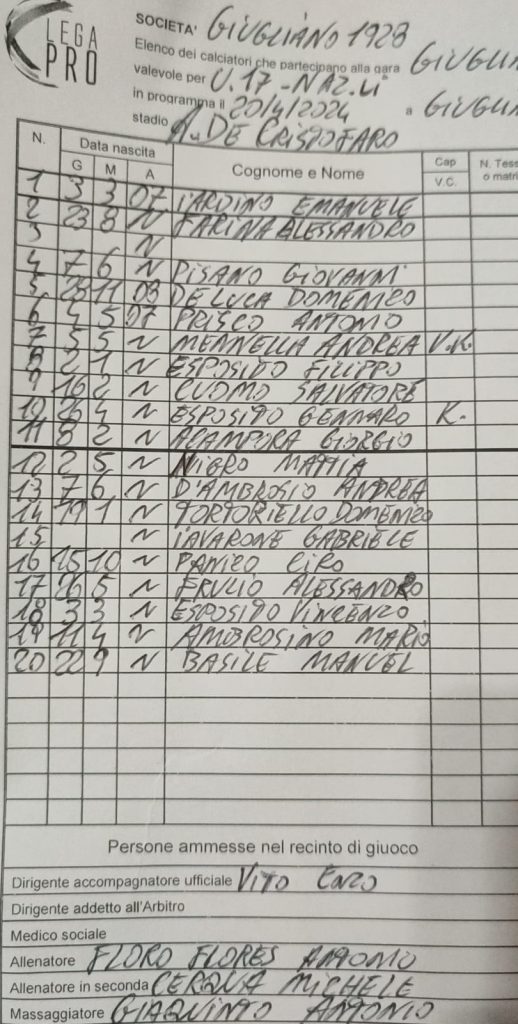 LEGA PRO
SOCIETA' GIUGLIANO 1928
Elenco dei calciatori che partecipano alla gara GIUGLI
valevole per U.17 - NAZ.LI
in programma il 20/4/2024 a GIUGLI
stadio A. DE CRISTOFARO
N. Data nascita Cognome e Nome Cap N. Tess
G M A V.C. o matri
1 3 3 07 IARDINO EMANUELE
2 23 8 ~ FARINA ALESSANDRO
3 ~
4 7 6 ~ PISANO GIOVANNI
5 23 11 08 DE LUCA DOMENICO
6 4 5 07 PRISCO ANTONIO
7 5 5 ~ MENNELLA ANDREA V.K.
8 2 1 ~ ESPOSITO FILIPPO
9 16 2 ~ CUOMO SALVATORE
10 26 4 ~ ESPOSITO GENNARO K.
11 8 2 ~ ACAMPORA GIORGIO
12 2 5 ~ NIGRO MATTIA
13 7 6 ~ D'AMBROSIO ANDREA
14 19 1 ~ TORTORIELLO DOMENICO
15 ~ IAVARONE GABRIELE
16 15 10 ~ PANICO CIRO
17 26 5 ~ ERULIO ALESSANDRO
18 3 3 ~ ESPOSITO VINCENZO
19 11 4 ~ AMBROSINO MARIO
20 22 9 ~ BASILE MANUEL
Persone ammesse nel recinto di giuoco
Dirigente accompagnatore ufficiale VITO ENZO
Dirigente addetto all'Arbitro
Medico sociale
Allenatore FLORO FLORES ANTONIO
Allenatore in seconda CERQUA MICHELE
Massaggiatore GIAQUINTO ANTONIO